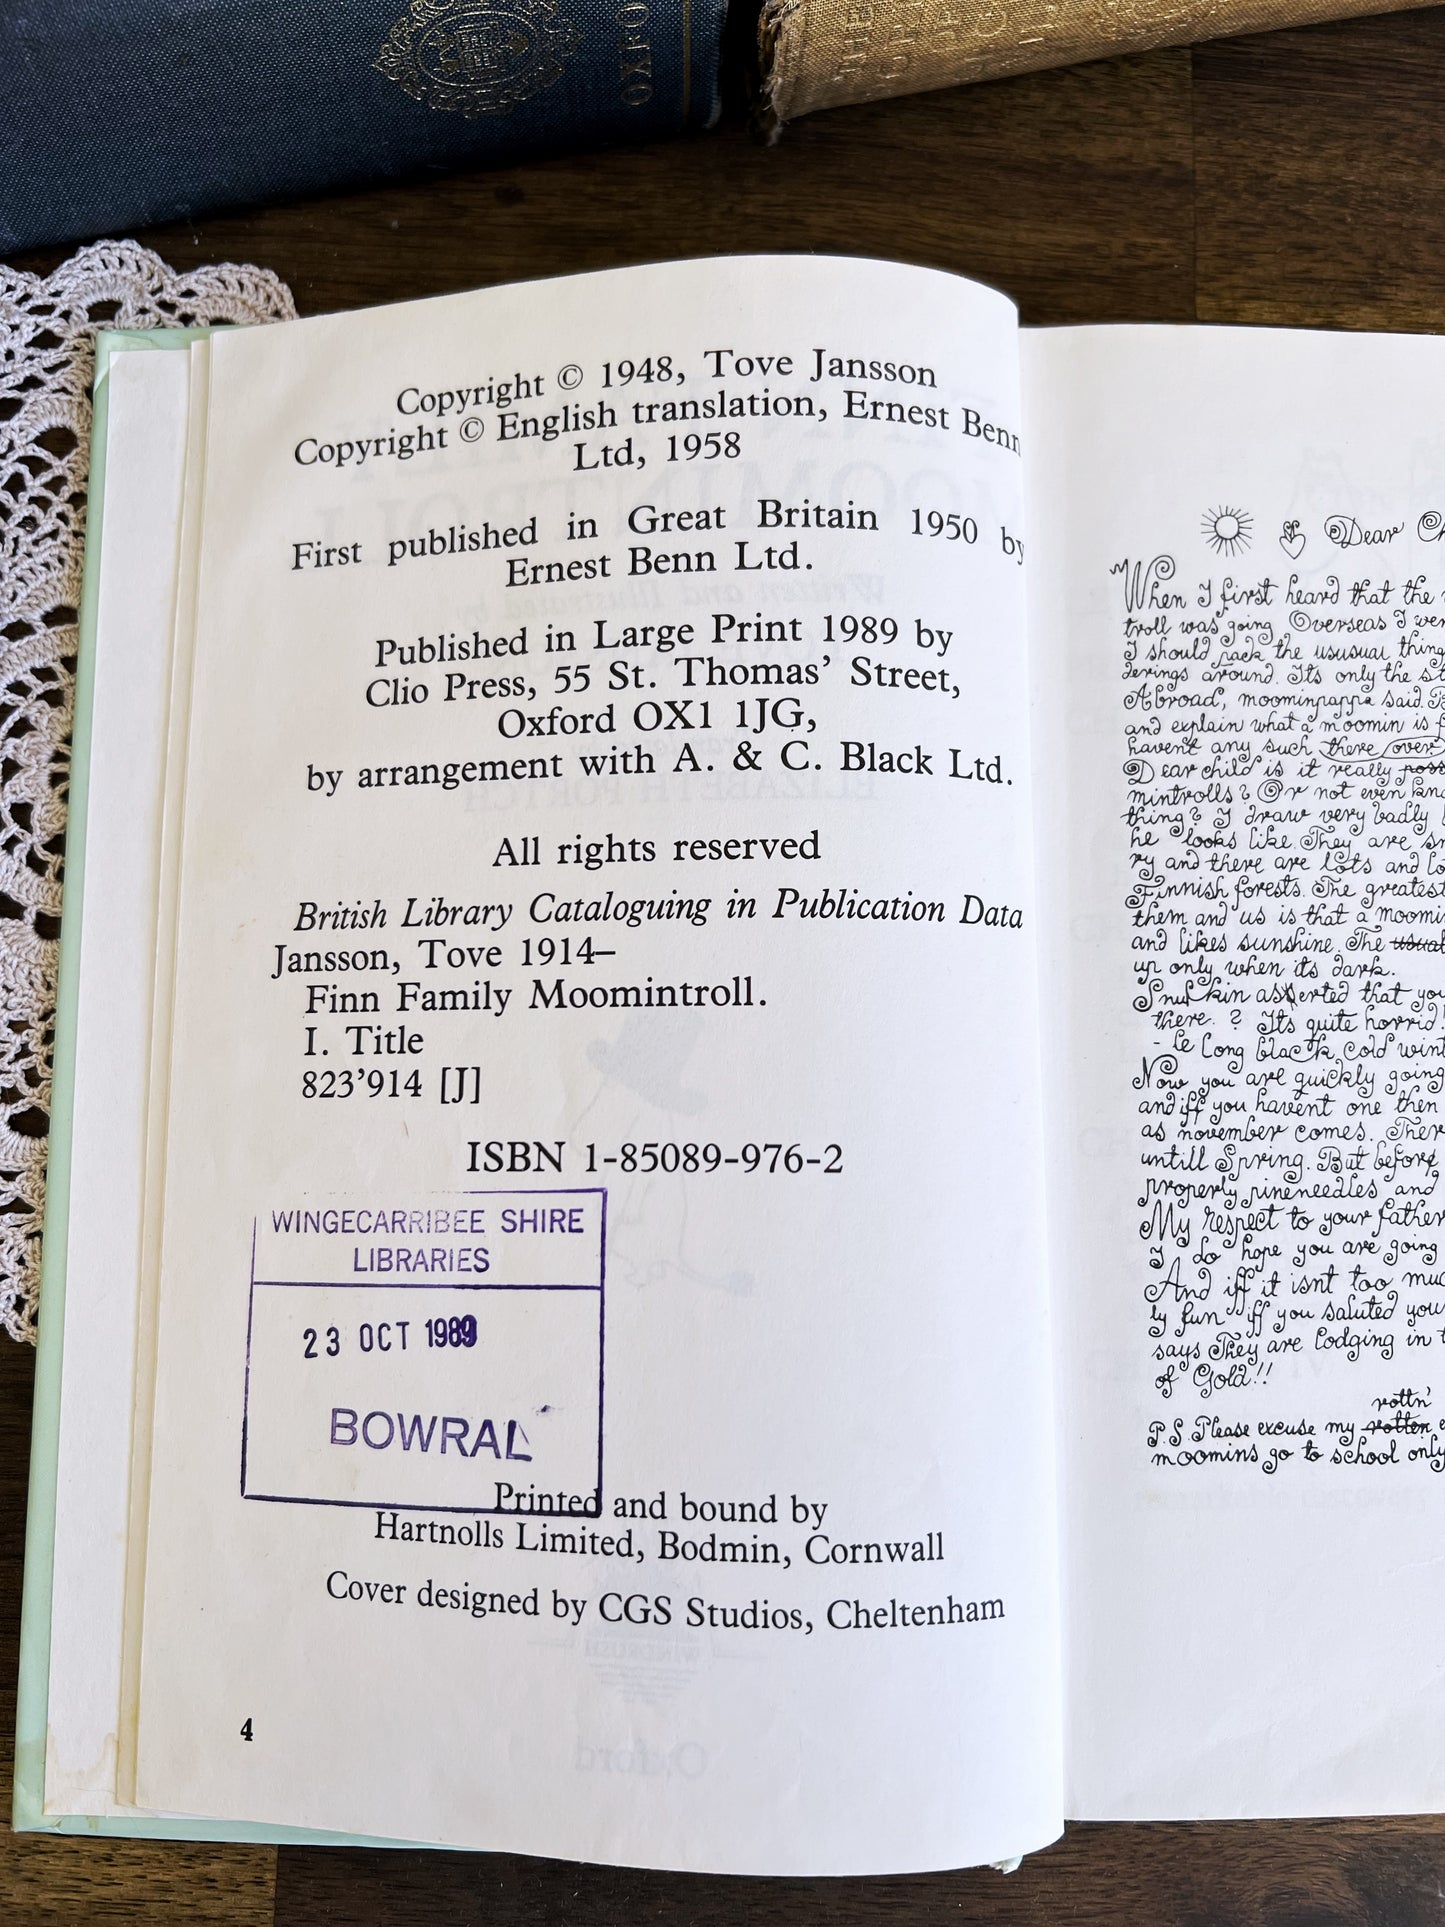 OXFO
Copyright © 1948, Tove Jansson
Copyright © English translation, Ernest Benn
Ltd, 1958
First published in Great Britain 1950 by
Ernest Benn Ltd.
Published in Large Print 1989 by
Clio Press, 55 St. Thomas’ Street,
Oxford OX1 1JG,
by arrangement with A. & C. Black Ltd.
All rights reserved
British Library Cataloguing in Publication Data
Jansson, Tove 1914–
Finn Family Moomintroll.
I. Title
823’914 [J]
ISBN 1-85089-976-2
WINGECARRIBEE SHIRE
LIBRARIES
23 OCT 1989
BOWRAL
Printed and bound by
Hartnolls Limited, Bodmin, Cornwall
Cover designed by CGS Studios, Cheltenham
4
Dear Ch
When I first heard that the
troll was going Overseas I wer
I should pack the ususual thing
derings around. Its only the st
Abroad, moominpappa said.
and explain what a moomin is
havent any such there over
Dear child is it really poss
mintrolls? Or not even
thing? I draw very badly
he looks like. They are sm
ry and there are lots and lo
Finnish forests. The greatest
them and us is that a moomin
and likes sunshine. The usual
up only when its dark.
Snufkin asserted that you
there. ? Its quite horrid!
- le long black cold wint
Now you are quickly going
and iff you havent one then
as november comes. Ther
untill Spring. But before
properly pineneedles and
My respect to your father
I do hope you are going
And iff it isnt too muc
ly fun iff you saluted you
says They are lodging in t
of Gold!!
rottn'
P.S. Please excuse my rotten e
moomins go to school only